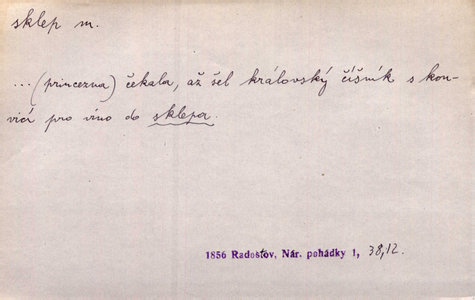 sklep m.
... (princezna) čekala, až šel královský číšník s kon-
vicí pro víno do sklepa.
1856 Radostov, Nár. pohádky 1, 38,12.